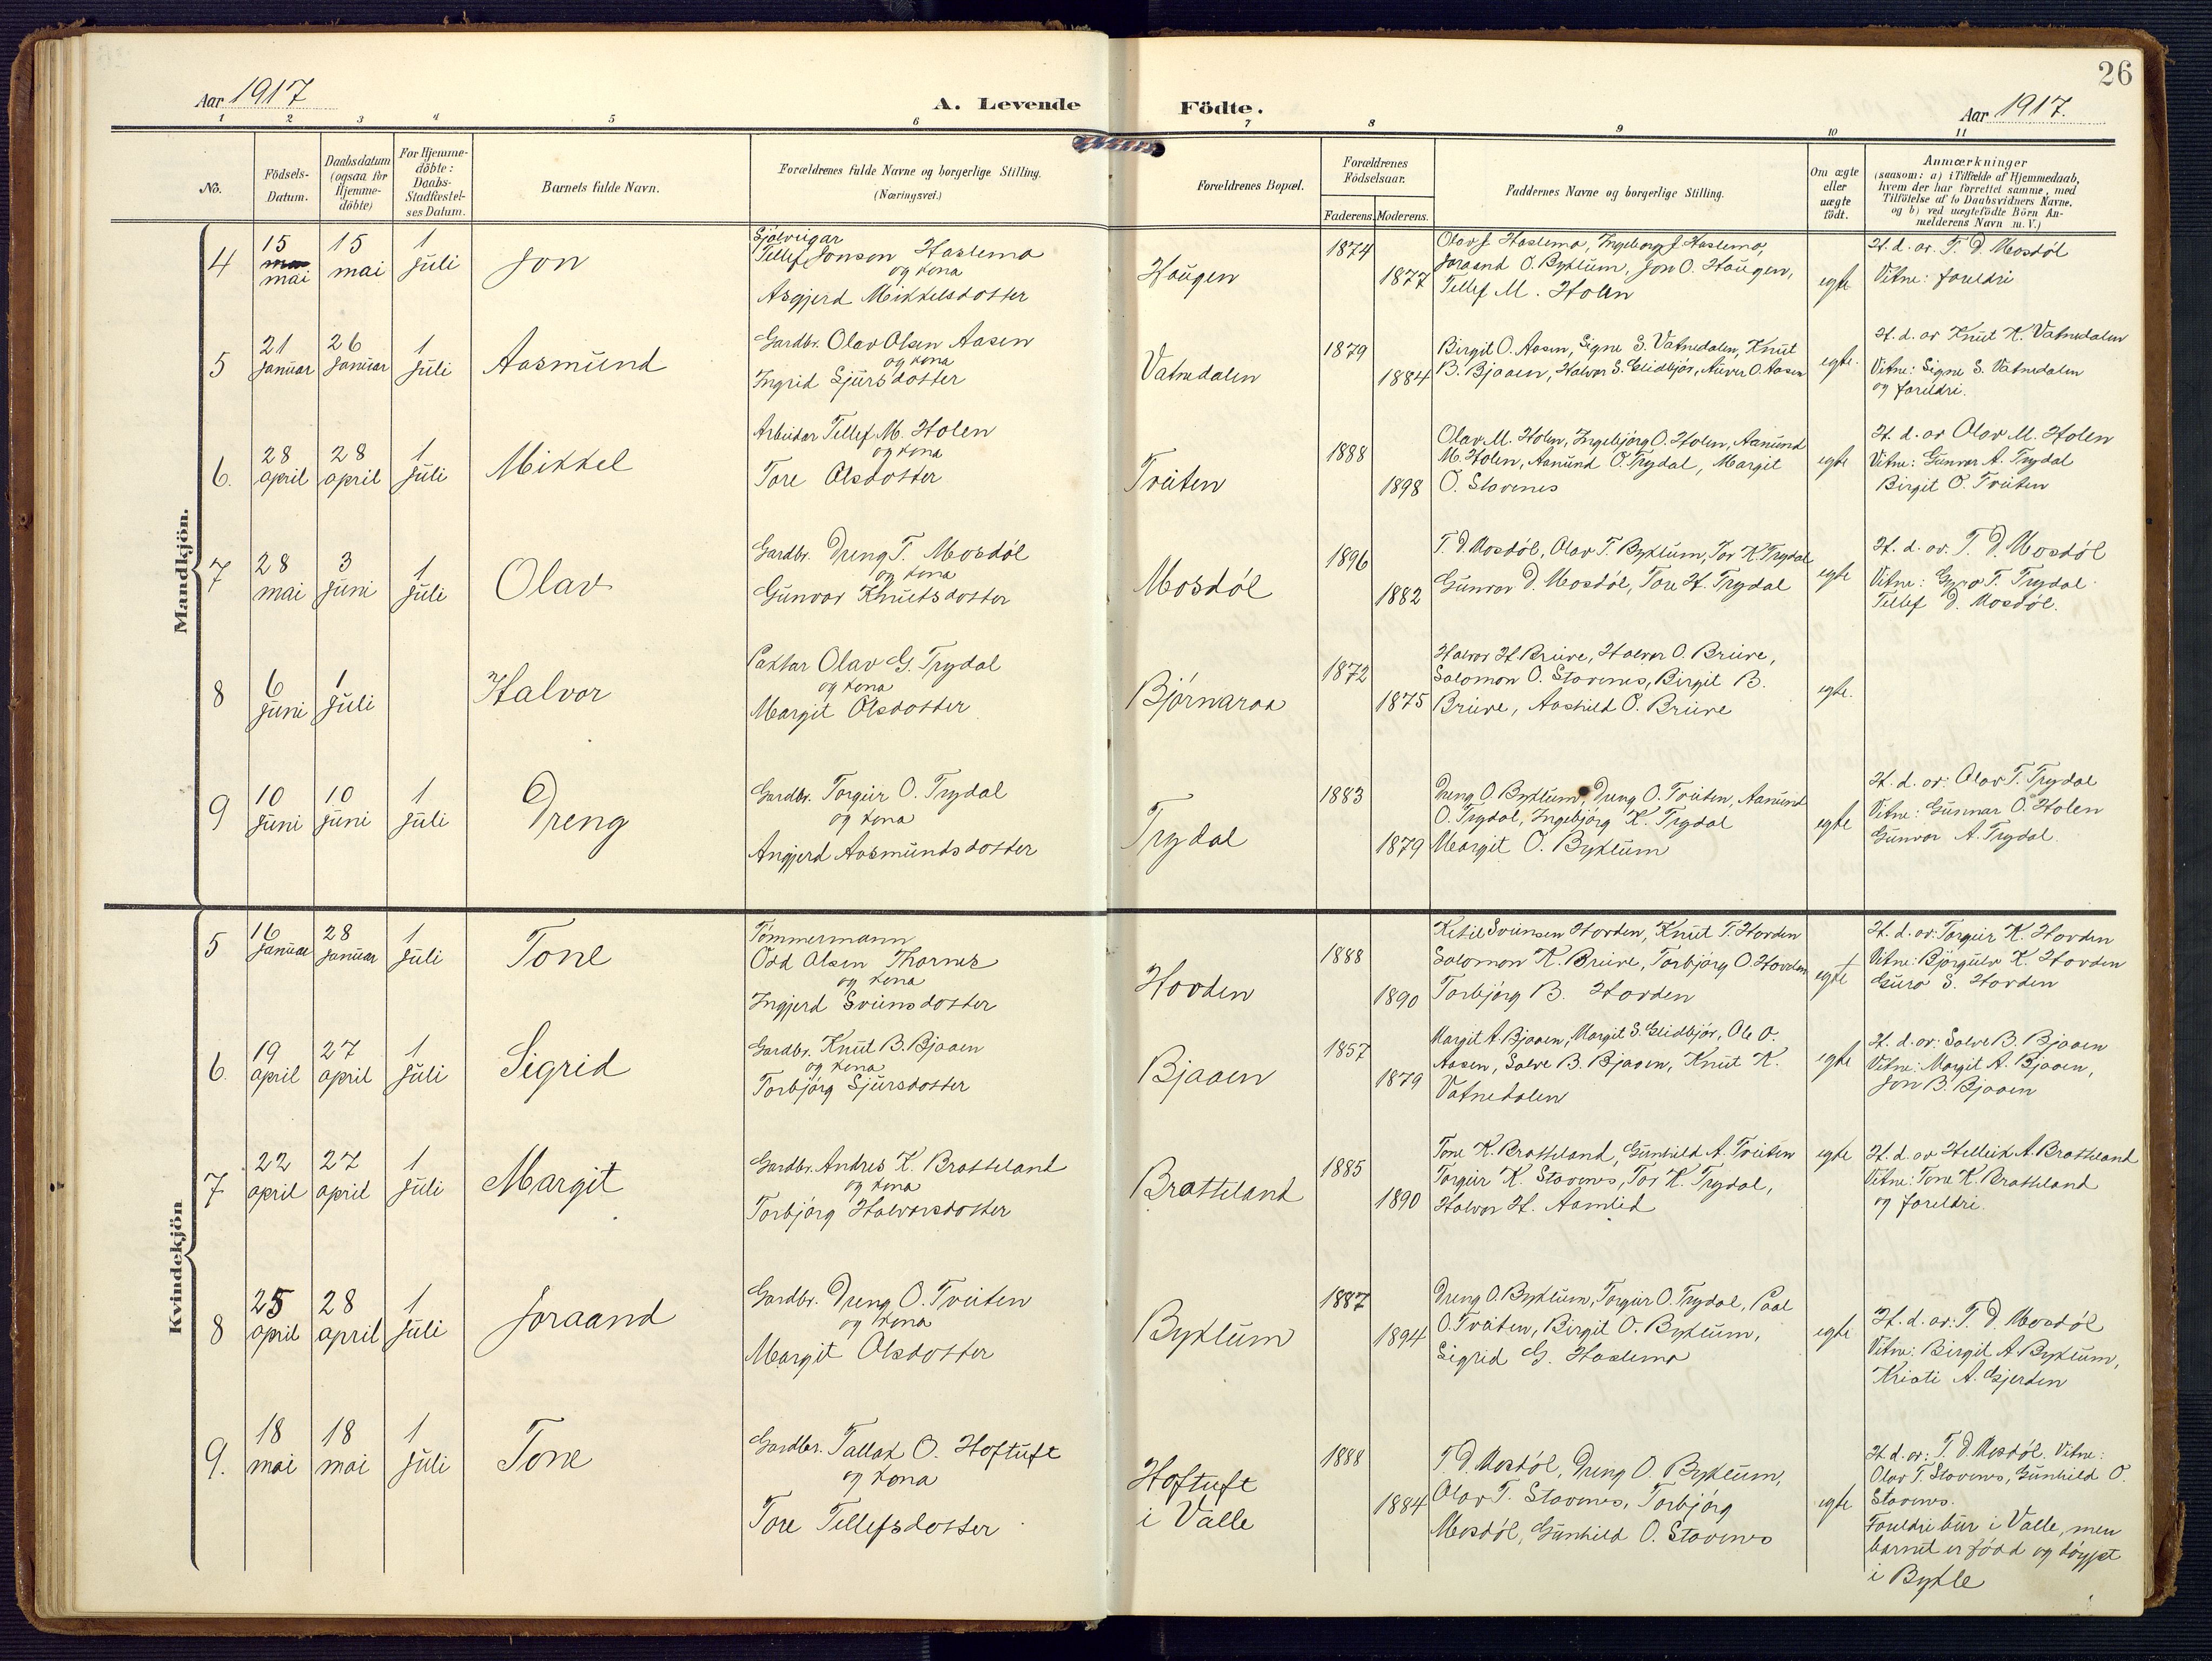 26
Aar 1917
A. Levende Födte.
Aar 1917.
1 2 3 4 5 6 7 8 9 10 11
No.
Födsels-
Datum.
Daabsdatum
(ogsaa for
Hjemme-
döbte)
For Hjemme-
döbte:
Daabs-
Stadfæstel-
ses Datum.
Barnets fulde Navn.
Forældrenes fulde Navne og borgerlige Stilling.
(Næringsvei.)
Forældrenes Bopæl.
Forældrenes
Födselsaar.
Faderens. Moderens.
Faddernes Navne og borgerlige Stilling.
Om ægte
eller
uægte
födt.
Anmærkninger
(saasom: a) i Tilfælde af Hjemmedaab,
hvem der har forrettet samme, med
Tilföielse af to Daabsvidners Navne,
og b) ved uægtefödte Börn An-
melderens Navn m. V.)
Mandkjön.
4
15
mai
15
mai
1
juli
Jon
Sjølveigar
Tellef Jonson Haslemo
og kona
Asgjerd Mikkelsdotter
Haugen
1874
1877
Olav J. Haslemo, Ingeborg J. Haslemo,
Joraand O. Byklum, Jon O. Haugen,
Tellef M. Holen
egte
H. d. av. T. D. Mosdøl
Vitne: foreldri
5
21
januar
26
januar
1
juli
Aasmund
Gardbr. Olav Olsen Aasen
og kona
Ingrid Sjursdotter
Vatnedalen
1879
1884
Birgit O. Aasen, Signe S. Vatnedalen, Knut
B. Bjaaen, Halvor S. Glidbjør, Auver O. Aasen
egte.
H. d. av Knut K. Vatnedalen
Vitne: Signe S. Vatnedalen
og foreldri.
6.
28
april
28
april
1
juli
Mikkel
Arbeidar Tellef M. Holen
og kona
Tore Olsdotter
Tveiten
1888
1898
Olav M. Holen, Ingebjørg O. Holen, Aanund
M. Holen, Aanund O. Trydal, Margit
O. Stavenes
egte
H. d. av Olav M. Holen
Vitne: Gunvor A. Trydal
Birgit O. Tveiten
7
28
mai
3
juni
1
juli
Olav
Gardbr. Dreng T. Mosdøl
og kona
Gunvor Knutsdotter
Mosdøl
1896
1882
T. D. Mosdøl, Olav T. Byklum, Tor K. Trydal
Gunvor D. Mosdøl, Tore H. Trydal
egte
H. d. av: T. D. Mosdøl
Vitne: Gyro T. Trydal
Tellef D. Mosdøl.
8
6
juni
1
juli
Halvor
Paktar Olav G. Trydal
og kona
Margit Olsdotter
Bjørnaraa
1872
1875
Halvor H. Breive, Halvor O. Breive,
Salomon O. Stavenes, Birgit B.
Breive, Aashild O. Breive
egte.
9
10
juni
10
juni
1
juli
Dreng
Gardbr. Torgeir O. Trydal
og kona
Angjerd Aasmundsdotter
Trydal
1883
1879
Dreng O. Byklum, Dreng O. Tveiten, Aanund
O. Trydal, Ingebjørg K. Trydal
Margit O. Byklum
egte
H. d. av: Olav T. Trydal
Vitne: Gunnar O. Holen
Gunvor A. Trydal.
Kvindekjön
5
16
januar
28
januar
1
juli
Tone
Tømmermann
Odd Olsen
og kona
Ingjerd Sveinsdotter
Hovden
1888
1890
Ketil Sveinsen Hovden, Knut T. Hovden
Salomon K. Breive, Torbjørg O. Hovden
Torbjørg B. Hovden
egte
H. d. av: Torgeir K. Hovden
Vitne: Bjørgulv K. Hovden
Guro S. Hovden
6.
19
april
27
april
1
juli
Sigrid
Gardbr. Knut B. Bjaaen
og kona
Torbjørg Sjursdotter
Bjaaen
1857
1879
Margit A. Bjaaen, Margit S. Glidbjør, Ole O.
Aasen, Salve B. Bjaaen, Knut K.
Vatnedalen
egte
H. d. av: Salve B. Bjaaen
Vitne: Margit A. Bjaaen,
Jon B. Bjaaen
7
22
april
27
april
1
juli
Margit
Gardbr. Andres K. Bratteland
og kona
Torbjørg Halvorsdotter
Bratteland
1885
1890
Tone K. Bratteland, Gunhild A. Tveiten
Torgeir K. Stavenes, Tor K. Trydal,
Halvor H. Aamlid
egte
H. d. av Helleik A. Bratteland
Vitne: Tone K. Bratteland
og foreldri.
8
25
april
28
april
1
juli
Joraand
Gardbr. Dreng O. Tveiten
og kona
Margit Olsdotter
Byklum
1887
1894
Dreng O. Byklum, Torgeir O. Trydal, Paal
O. Tveiten, Birgit O. Byklum,
Sigrid G. Haslemo
egte
H. d. av: T. D. Mosdøl
Vitne: Birgit A. Byklum,
Kristi A. Gjerden
9.
18
mai
18
mai
1
juli
Tone
Gardbr. Tallak O. Hoftuft
og kona
Tore Tellefsdotter
Hoftuft
i Valle
1888
1884
T. D. Mosdøl, Dreng O. Byklum,
Olav T. Stavenes, Torbjørg
Mosdøl, Gunhild O. Stavenes
egte
H. d. av: T. D. Mosdøl. Vitne:
Olav T. Stavenes, Gunhild O.
Stavenes.
Foreldri bur i Valle, men
barnet er fødd og døypt
i Bykle